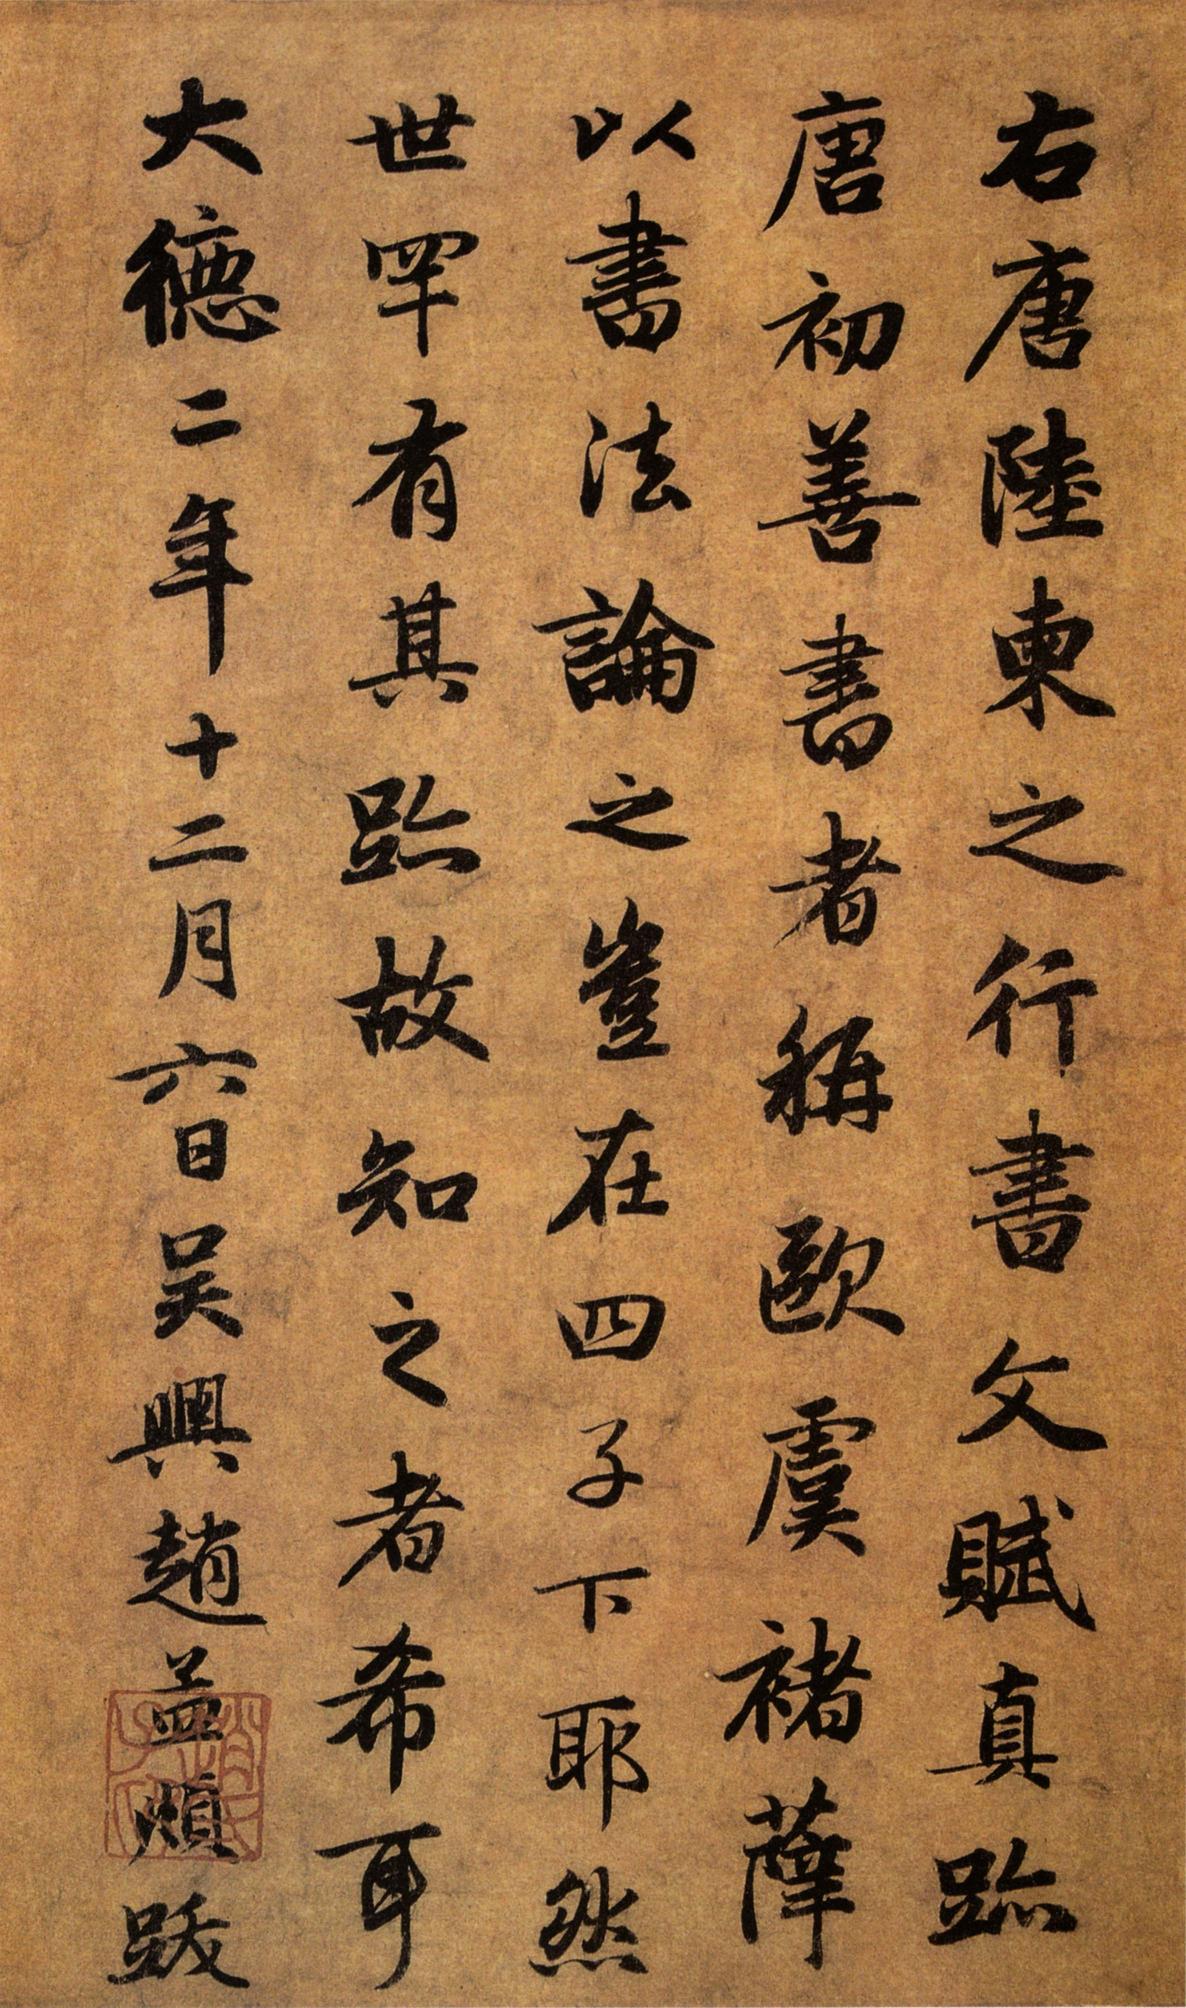 右唐陸柬之行書文賦真跡
唐初善書者稱歐虞褚薛
以書法論之豈在四子下耶然
世罕有其跡故知之者希耳
大德二年十二月六日吳興趙孟頫跋
趙氏子昂